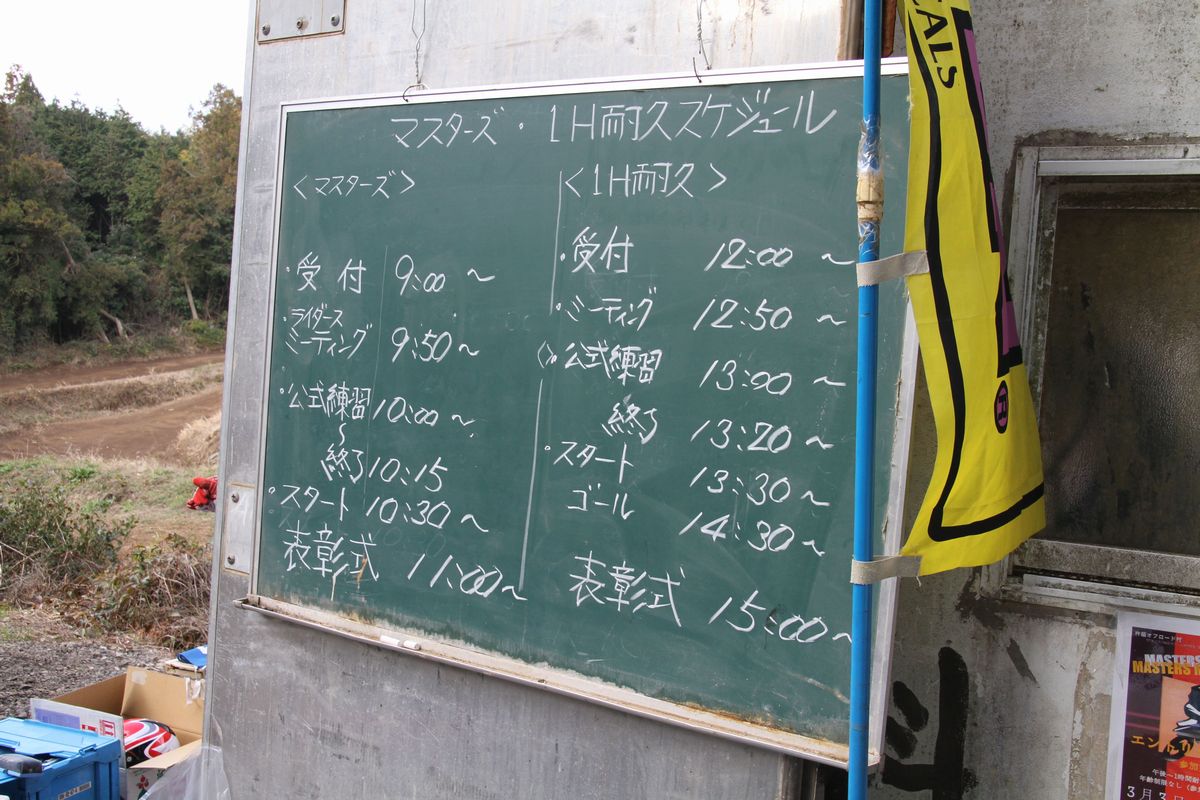 マスターズ・1H耐久スケジュール
<マスターズ>
・受付 9:00~
・ライダース
ミーティング 9:50~
・公式練習 10:00~
~
終了 10:15
・スタート 10:30~
表彰式 11:00~
<1H耐久>
・受付 12:00~
・ミーティング 12:50~
公式練習 13:00~
終了 13:20~
・スタート 13:30~
ゴール 14:30~
表彰式 15:00~
CALS
MASTERS
MASTERS
エント
参加
午後一1時間耐
年齢制限なし(参
3月3日